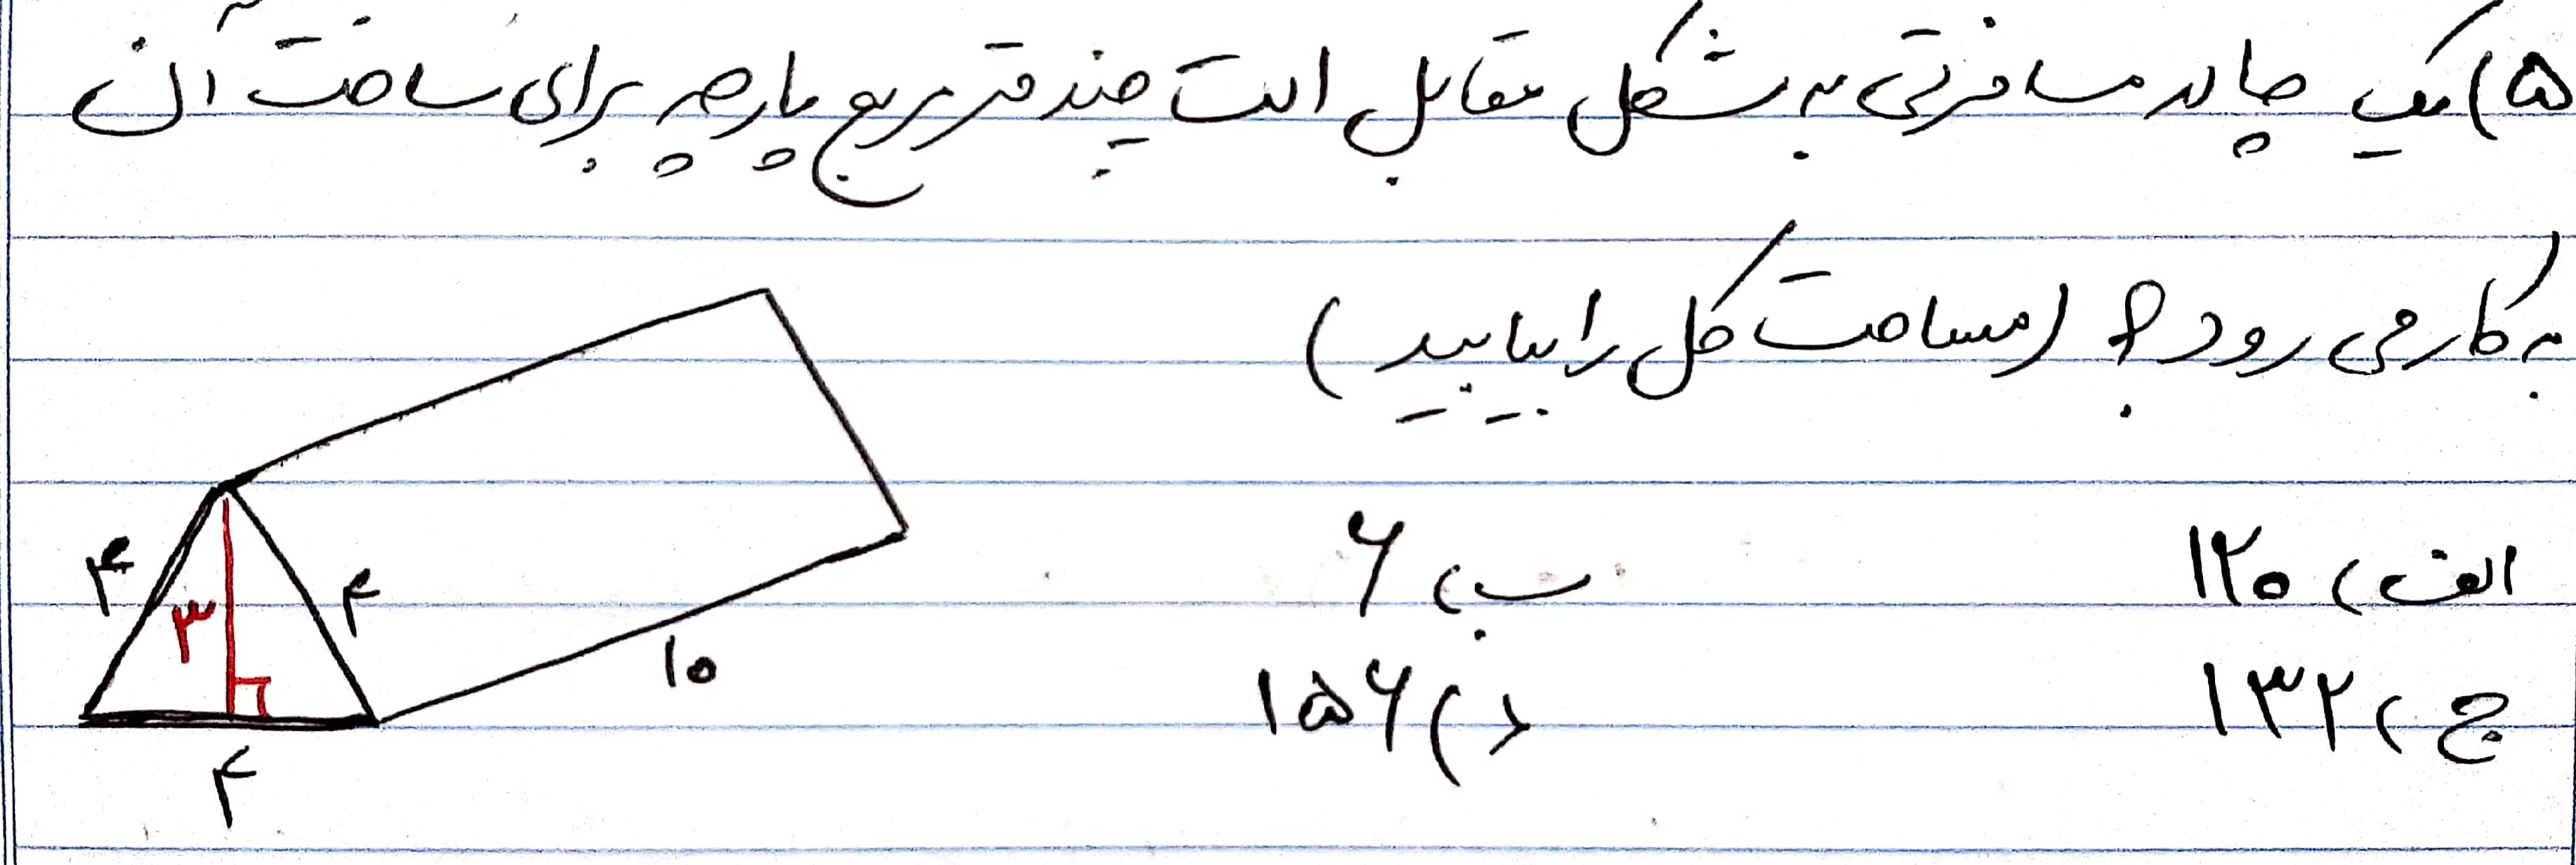 ۵) یک چادر مسافرتی به شکل مقابل است چند متر مربع پارچه برای ساخت آن
به کار می رود؟ (مساحت کل را بیابید)
الف) ۱۲۰
ب) ۶
ج) ۱۳۲
د) ۱۵۶
۴
۳
۴
۱۰
۴